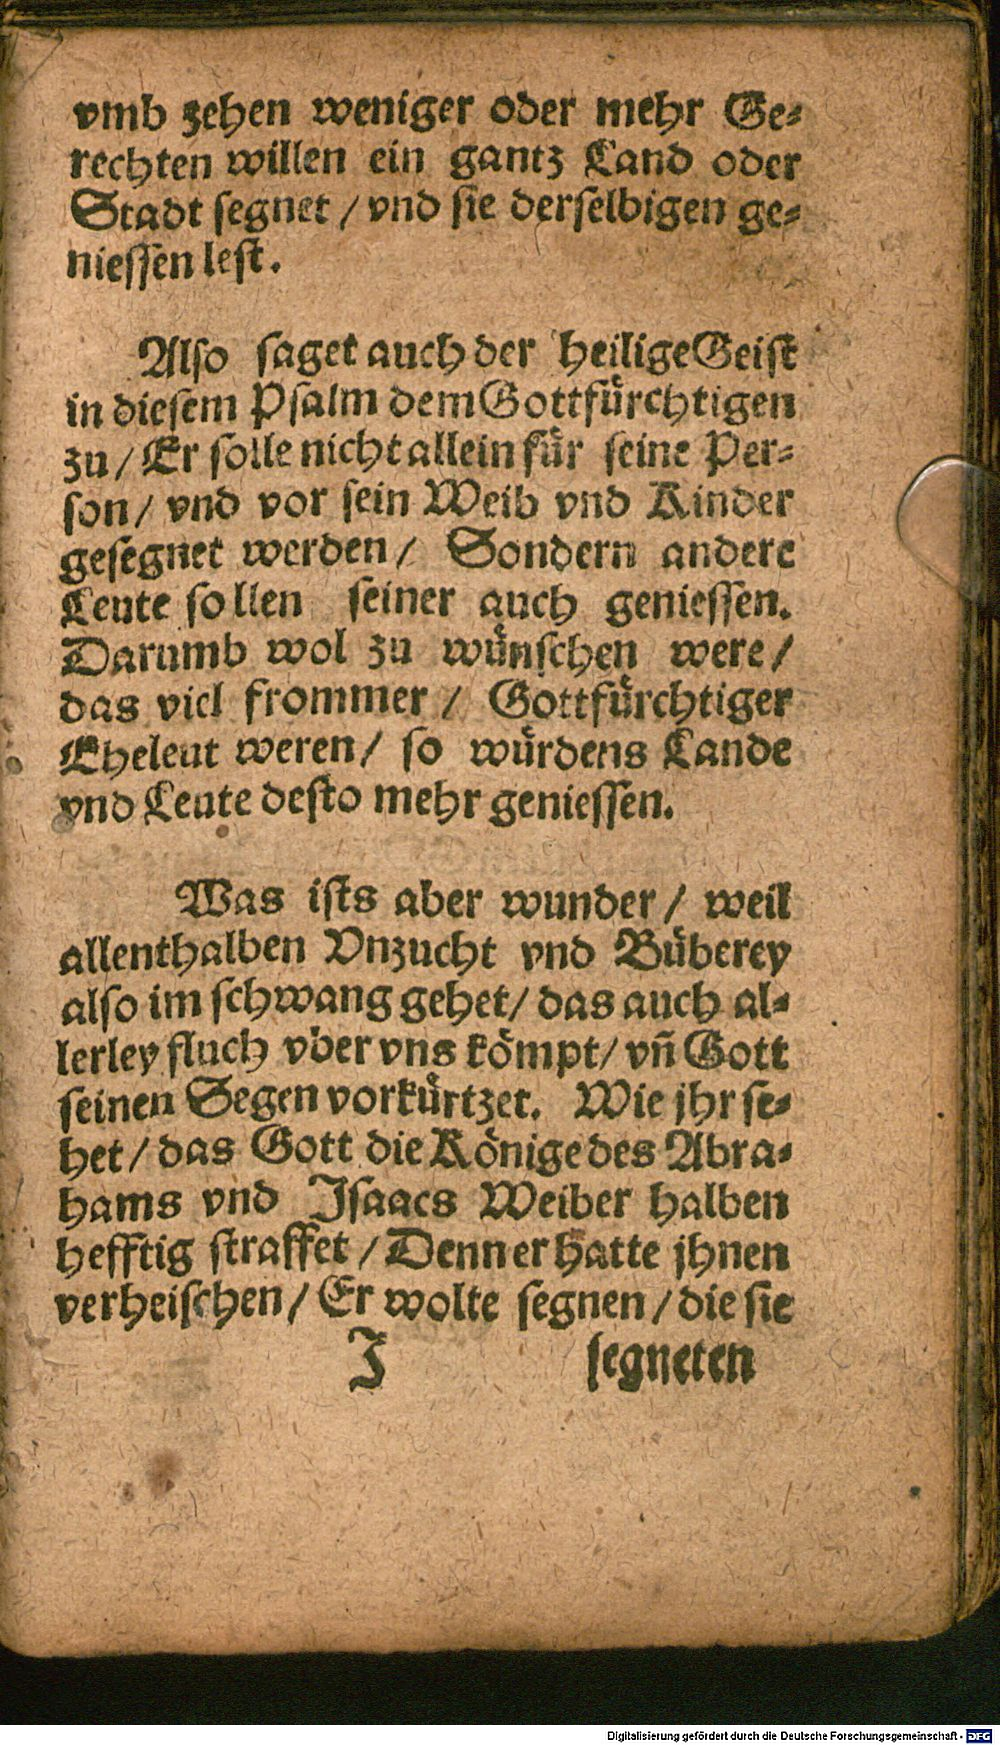 vmb zehen weniger oder mehr Ge⸗
rechten willen ein gantz Land oder
Stadt segnet / vnd sie derselbigen ge⸗
niessen lest.
Also saget auch der heilige Geist
in diesem Psalm dem Gottfuͤrchtigen
zu / Er solle nicht allein fuͤr seine Per⸗
son / vnd vor sein Weib vnd Kinder
gesegnet werden / Sondern andere
Leute sollen seiner auch geniessen.
Darumb wol zu wuͤnschen were /
das viel frommer / Gottfuͤrchtiger
Eheleut weren / so wuͤrdens Lande
vnd Leute desto mehr geniessen.
Was ists aber wunder / weil
allenthalben Vnzucht vnd Buͤberey
also im schwang gehet / das auch al⸗
lerley fluch vber vns koͤmpt / vñ Gott
seinen Segen vorkuͤrtzet. Wie jhr se⸗
het / das Gott die Koͤnige des Abra⸗
hams vnd Isaacs Weiber halben
hefftig straffet / Denn er hatte jhnen
verheischen / Er wolte segnen / die sie
J segneten
Digitalisierung gefördert durch die Deutsche Forschungsgemeinschaft - DFG